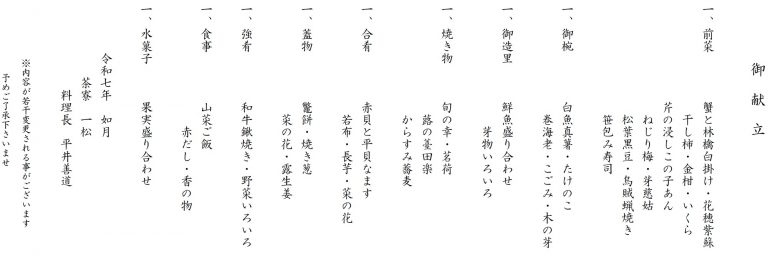 御献立
一、前菜　蟹と林檎白掛け・花穂紫蘇
干し柿・金柑・いくら
芹の浸しこの子あん
ねじり梅・芽慈姑
松葉黒豆・烏賊蝋焼き
笹包み寿司
一、御椀　白魚真薯・たけのこ
巻海老・こごみ・木の芽
一、御造里　鮮魚盛り合わせ
芽物いろいろ
一、焼き物　旬の幸・茗荷
蕗の薹田楽
からすみ蕎麦
一、合肴　赤貝と平貝なます
若布・長芋・菜の花
一、蓋物　鼈餅・焼き葱
菜の花・露生姜
一、強肴　和牛鍬焼き・野菜いろいろ
一、食事　山菜ご飯
赤だし・香の物
一、水菓子　果実盛り合わせ
令和七年　如月
茶寮　一松
料理長　平井善道
※内容が若干変更される事がございます
予めご了承下さいませ